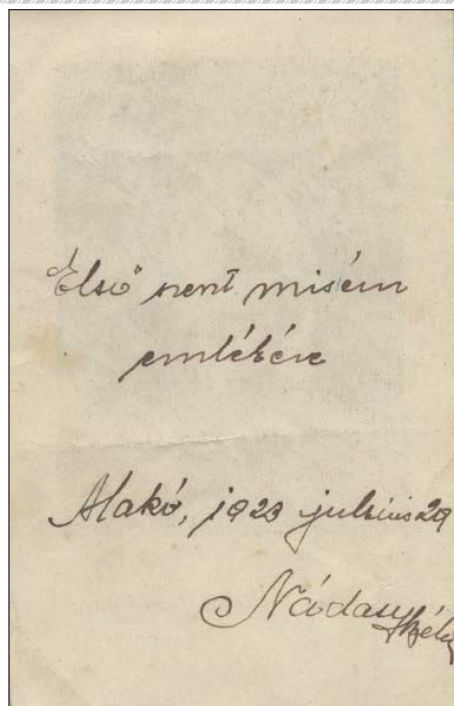 Első szent misém
emlékére
Makó, 1923 július 29
Nádasy Béla